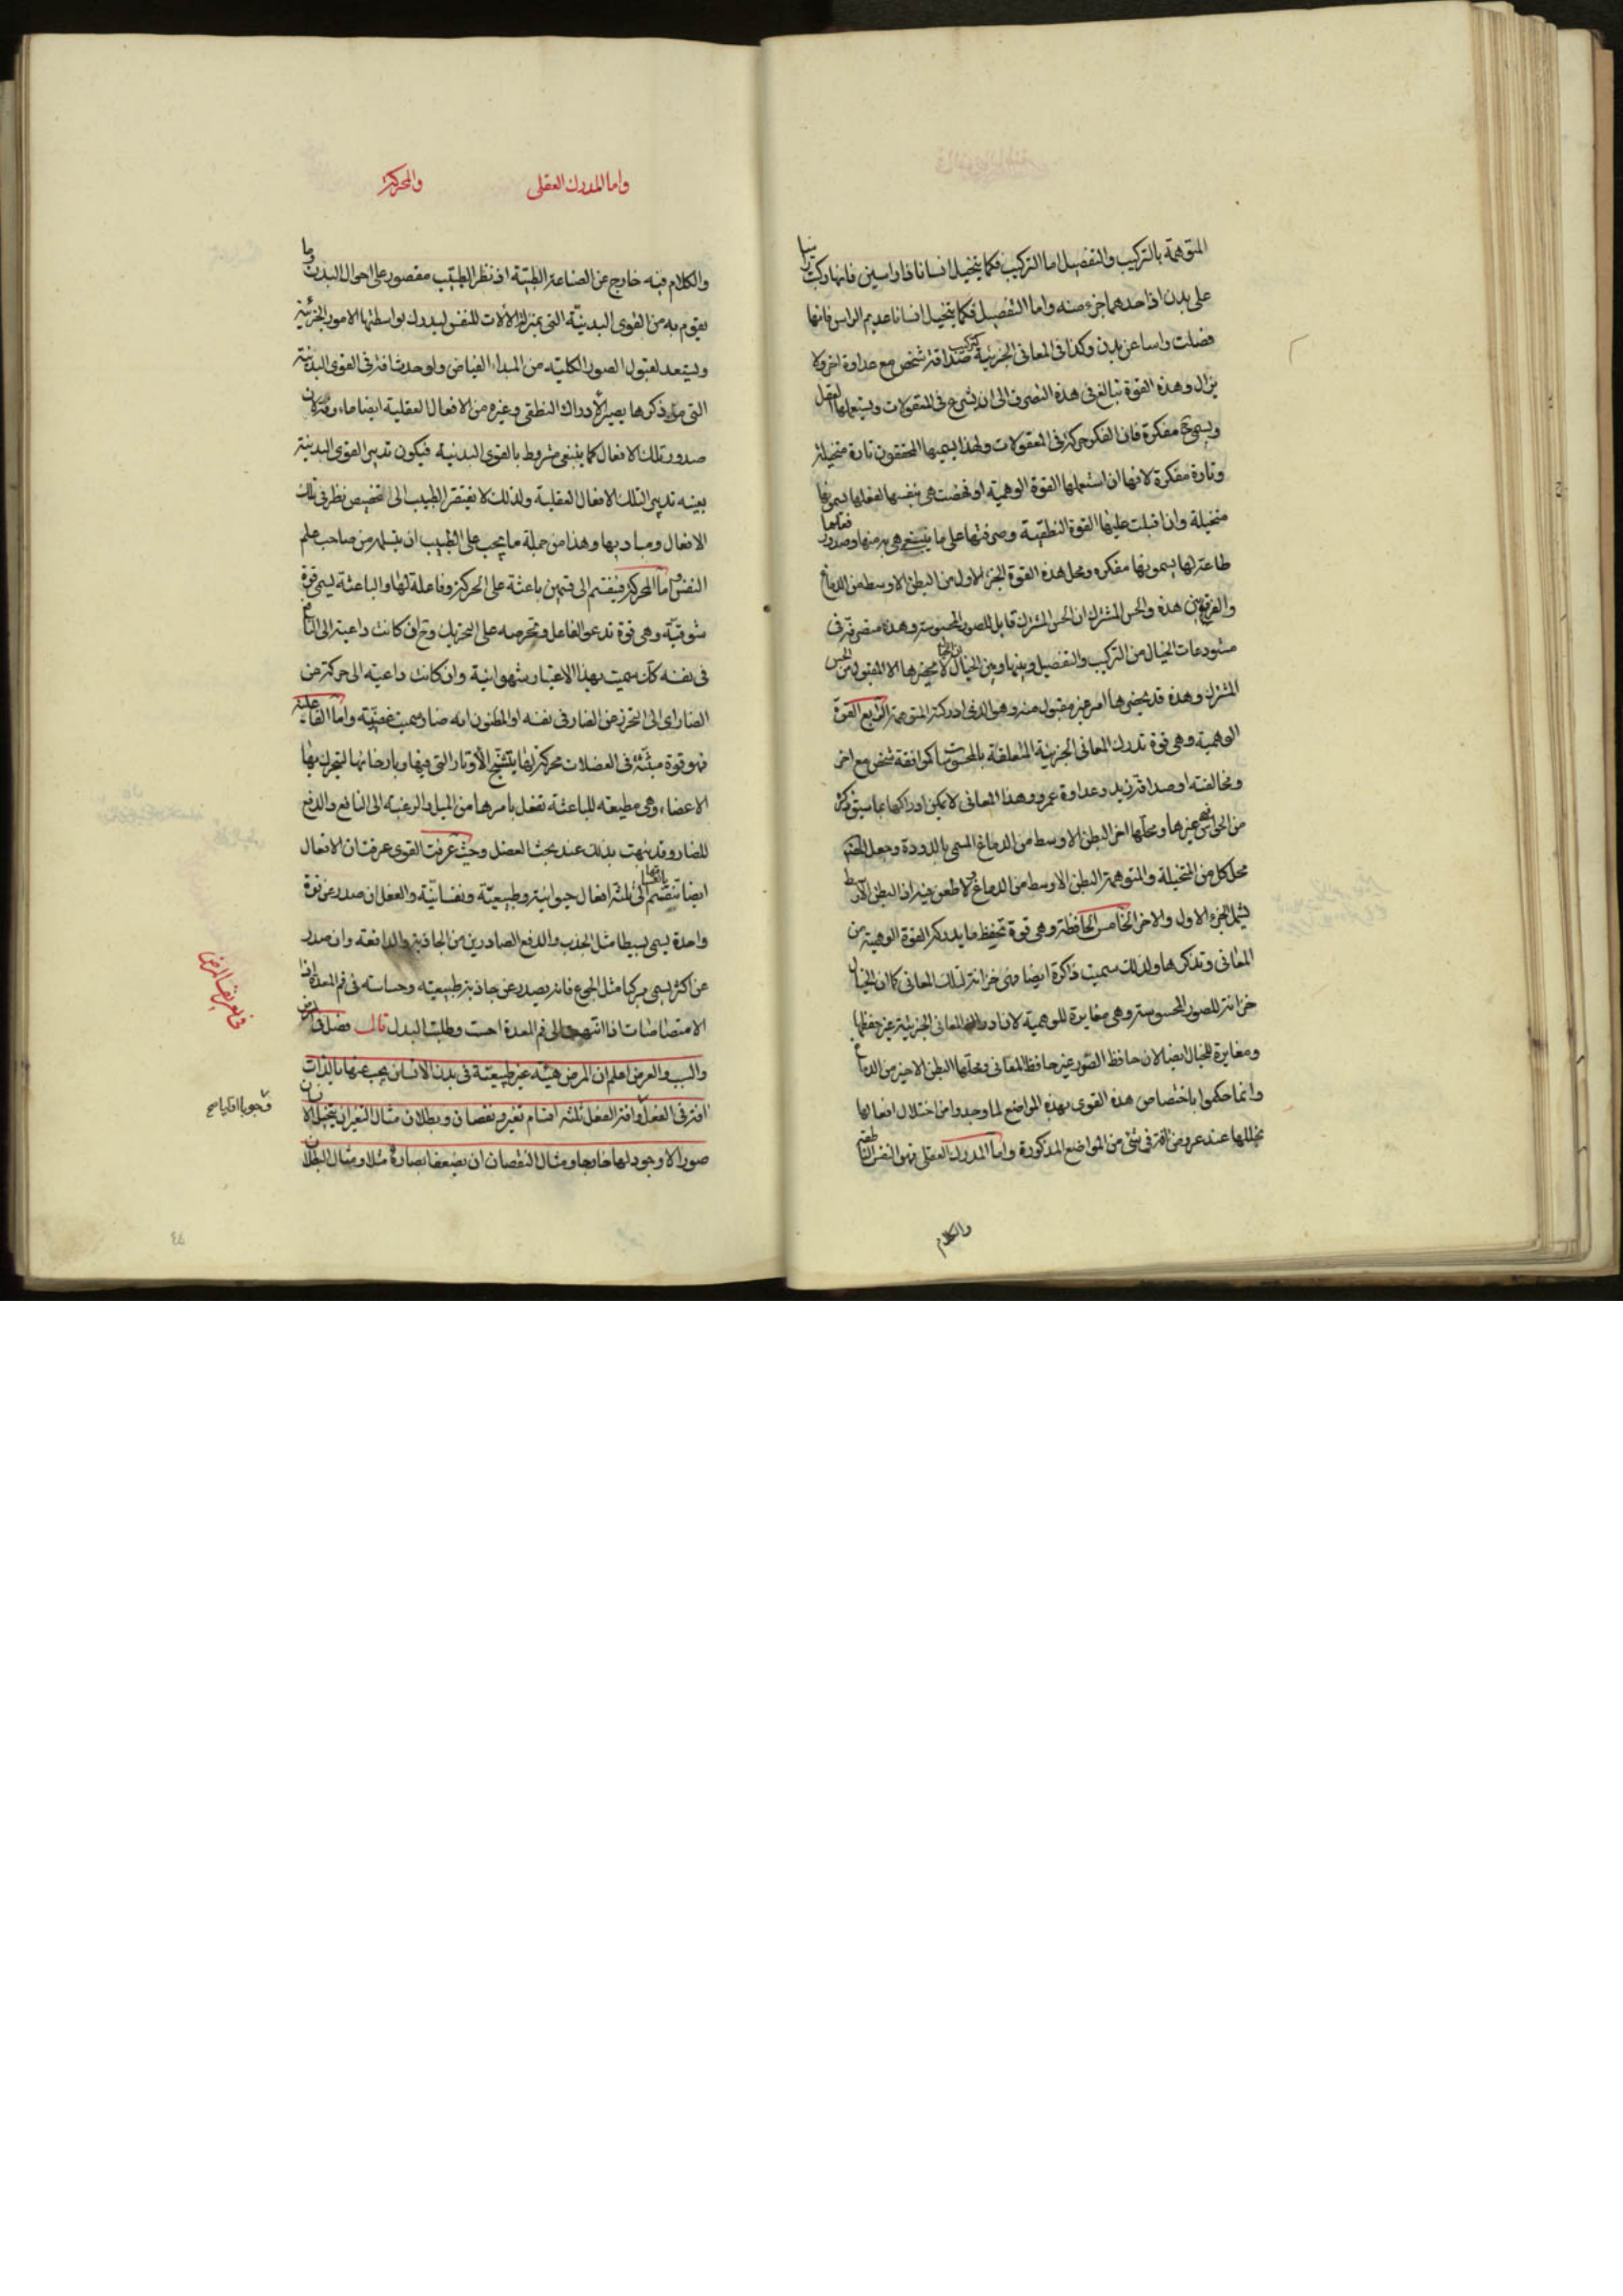 المتوهمة بالتركيب والتفصيل اما التركيب فكما يتخيل انسانا ذا راسين فانها ركبت راسا
على بدن اذ احدهما جزء منه واما التفصيل فكما يتخيل انسانا عديم الراس فانها
فصلت راسا عن بدن وكذا فى المعانى الجزئية كتركيب صداقة شخص مع عداوة اخر ولا
يزال وهذه القوة تبالغ فى هذه التصرف الى ان تشرع فى المعقولات ويستعملها العقل
ويسمى ح مفكرة فان الفكر حركة فى المعقولات ولهذا يسميها المحققون تارة متخيلة
وتارة مفكرة لانها ان استعملها القوة الوهمية او نهضت هى بنفسها لفعلها يسمونها
متخيلة وان اقبلت عليها القوة النطقية وصرفتها على ما ينتفع هى به منها وصدور فعلها
طاعة لها يسمونها مفكره ومحل هذه القوة الجزء الاول من البطن الاوسط من الدماغ
والفرق بين هذه والحس المشترك ان الحس المشترك قابل للصور المحسوسة وهذه متصرفة فى
مستودعات الخيال من التركيب والتفصيل وبينها وبين الخيال ان الخيال لا يحضرها الا المقبول من الحس
المشترك وهذه قد يحضرها امر غير مقبول منه وهو الذى ادركته المتوهمة الرابع القوة
الوهمية وهى قوة تدرك المعانى الجزئية المتعلقة بالمحسوسات كموافقة شخص مع اخر
ومخالفته او صداقة زيد وعداوة عمرو وهذا المعانى لا يمكن ادراكها بما سبق ذكره
من الحواس فهى غيرها ومحلها اخر البطن الاوسط من الدماغ المسمى بالدودة وجعل
محل كل من المتخيلة والمتوهمة البطن الاوسط من الدماغ ولا طعن فيه اذ البطن الاوسط
يشمل الجزء الاول والاخر الخامس الحافظة وهى قوة تحفظ ما يدركه القوة الوهمية من
المعانى وتذكرها ولذلك سميت ذاكرة ايضا وهى خزانة لتلك المعانى كما ان الخيال
خزانة للصور المحسوسة وهى مغايرة للوهمية لان ادراك المعانى الجزئية غير حفظها
ومغايرة للخيال ايضا لان حافظ الصور غير حافظ المعانى ومحلها البطن الاخير من الدماغ
وانما حكموا باختصاص هذه القوى بهذه المواضع لما وجدوا من اختلال افعالها
بخللها عند عروض افة فى شئ من المواضع المذكورة واما المدرك العقلى فهو النفس الناطقة
والكلام
واما المدرك العقلى
والمحركة
والكلام فيه خارج عن الصناعة الطبية اذ نظر الطبيب مقصور على احوال البدن وما
يقوم به من القوى البدنية التى بمنزلة الالات للنفس ليدرك بواسطتها الامور الجزئية
ويستعد لقبول الصور الكلية من المبداء الفياض ولو حدث افة فى القوى البدنية
التى مر ذكرها يصير الادراك النطقى وغيره من الافعال العقلية ايضا ماءوفة كان
صدور تلك الافعال كما ينبغى مشروط بالقوى البدنية فيكون تدبير القوى البدنية
بعينه تدبير التلك الافعال العقلية ولذلك لا يفتقر الطبيب الى تخصيص نظر فى تلك
الافعال ومباديها وهذا من جملة ما يجب على الطبيب ان يتسلمه من صاحب علم
النفس واما المحركة فينقسم الى قسمين باعثة على الحركة وفاعلة لها والباعثة يسمى قوة
شوقية وهى قوة تدعو الفاعل وتحرصه على التحريك وح ان كانت داعية الى النافع
فى نفسه كان سميت بهذا الاعتبار شهوانية وان كانت داعية الى حركة من
الضار اى الى التحرز عن الضار فى نفسه او المظنون انه ضار سميت غضبية واما الفاعلة
فهو قوة مبثثة فى العضلات محركة لها بتشنج الاوتار التى فيها وبارخائها ليتحرك بها
الاعضاء وهى مطيعة للباعثة تفعل بامرها من الميل والرغبة الى النافع والدفع
للضار وقد نبهت بذلك عند بحث العضل وحيث عرفت القوى عرفت ان الافعال
ايضا تنقسم بانقسامها الى ثلثة افعال حيوانية وطبيعية ونفسانية والفعل ان صدر عن قوة
واحدة يسمى بسيطا مثل الجذب والدفع الصادرين من الجاذبة والدافعة وان صدر
عن اكثر يسمى مركبا مثل الجوع فانه يصدر عن جاذبة طبيعية وحساسة فى فم المعدة اذا
الامتصاصات اذا انتهت الى فم المعدة احست وطلبت البدل قال فصل فى المرض
والسبب والعرض اعلم ان المرض هيئة غير طبيعية فى بدن الانسان يجب عنها بالذات
افة فى الفعل وافة الفعل ثلثة اقسام تغير ونقصان وبطلان مثال التغير ان يتخيل الانسان
صورا لا وجود لها خارجا ومثال النقصان ان يضعف ابصاره مثلا ومثال البطلان
فى تعريف المرض
٤٤